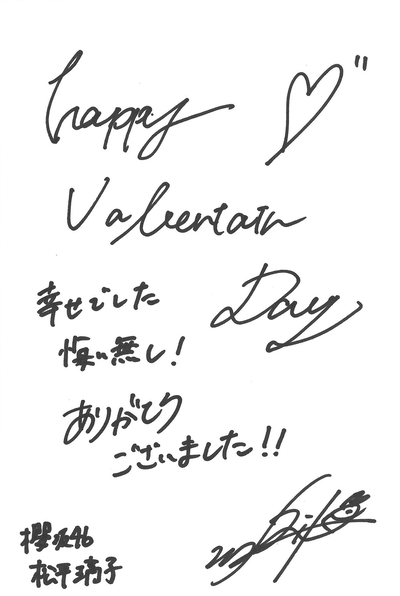 happy ♡"
Valentain
Day
幸せでした
悔い無し!
ありがとう
ございました!!
櫻坂46
松平璃子